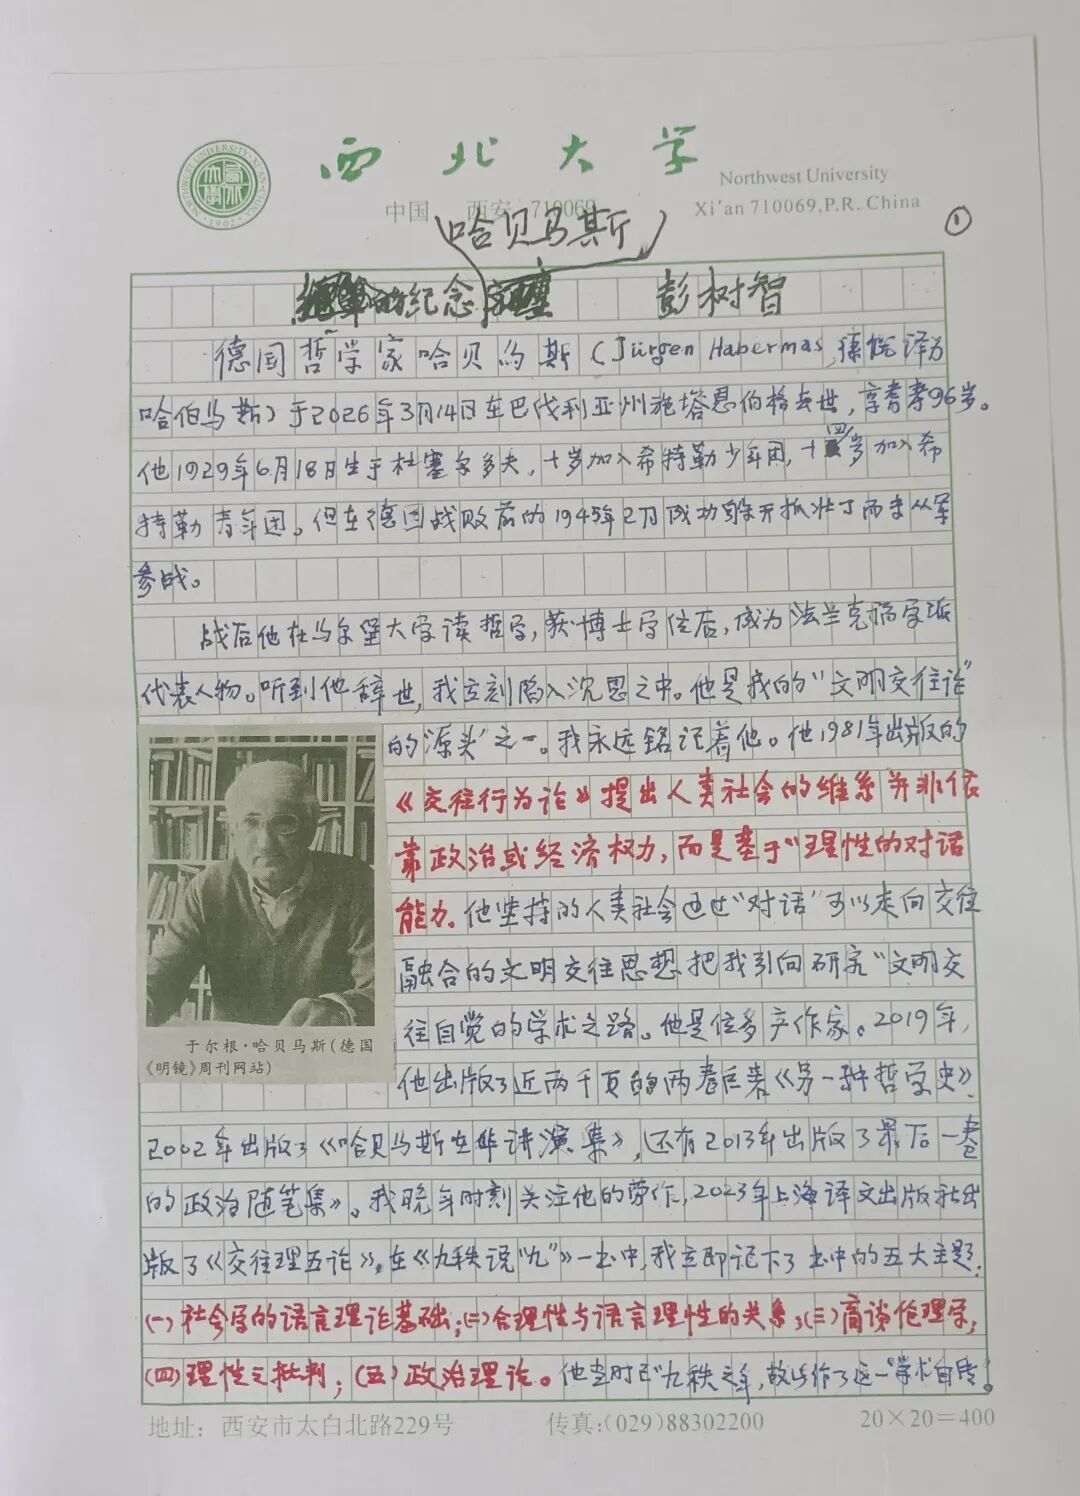 西北大学
NORTHWEST UNIVERSITY·XI'AN·CHINA
1902
Northwest University
中国 西安 710069
Xi'an 710069, P.R. China
①
哈贝马斯
纪念 彭树智
德国哲学家哈贝马斯（Jürgen Habermas，译为
哈伯马斯）于2026年3月14日在巴伐利亚州施塔恩伯格去世，享耆寿96岁。
他1929年6月18日生于杜塞尔多夫，十岁加入希特勒少年团，十四岁加入希
特勒青年团。但在德国战败前的1945年2月成功躲开抓壮丁而未从军
参战。
战后他在马尔堡大学读哲学，获博士学位后，成为法兰克福学派
代表人物。听到他辞世，我立刻陷入沉思之中。他是我的“文明交往论”
的“源头”之一。我永远铭记着他。他1981年出版的
《交往行为论》提出人类社会的维系并非依
靠政治或经济权力，而是基于“理性的对话
能力。他坚持的人类社会通过“对话”可以走向交往
融合的文明交往思想，把我引向研究“文明交
往自觉的学术之路。他是位多产作家。2019年，
他出版了近两千页的两卷巨著《另一种哲学史》、
2002年出版了《哈贝马斯在华讲演集》，还有2013年出版了最后一卷
的政治随笔集》。我晚年时刻关注他的劳作，2023年上海译文出版社出
版了《交往理五论》，在《九秩说“九”》一书中，我立即记下了书中的五大主题：
(一)社会学的语言理论基础；(二)合理性与语言理性的关系；(三)商谈伦理学，
(四)理性之批判；(五)政治理论。他当时已“九秩之年，故作了这一“学术自传。
于尔根·哈贝马斯（德国
《明镜》周刊网站）
地址：西安市太白北路229号 传真：(029)88302200 20×20=400